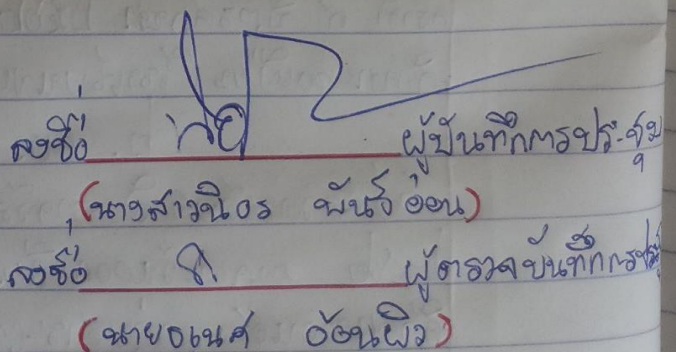 ลงชื่อ ผู้บันทึกการประชุม
(นางสาวนิอร พันธ์อ่อน)
ลงชื่อ ผู้ตรวจบันทึกการประ
(นายธเนศ อ้อนผิว)